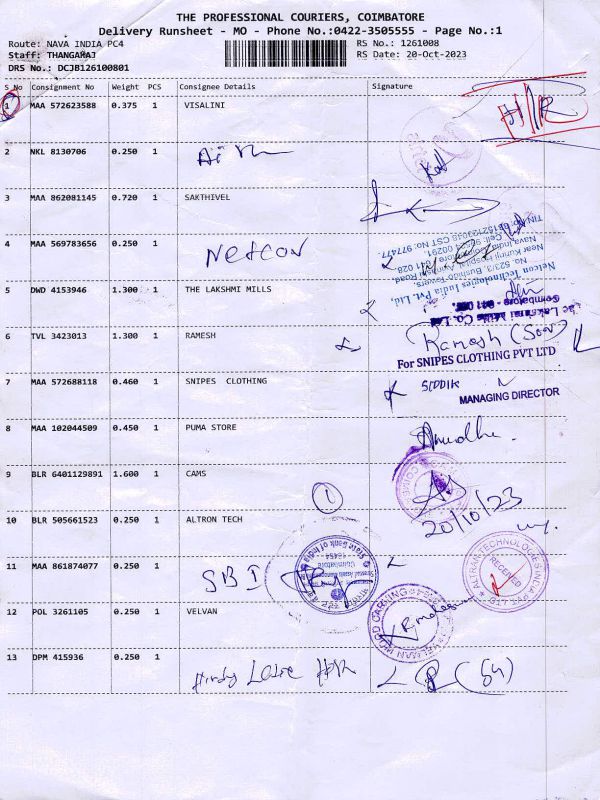 THE PROFESSIONAL COURIERS, COIMBATORE
Delivery Runsheet - MO - Phone No.:0422-3505555 - Page No.:1
Route: NAVA INDIA PC4 RS No.: 1261008
Staff: THANGARAJ RS Date: 20-Oct-2023
DRS No.: DCJB126100801
S No Consignment No Weight PCS Consignee Details Signature
1 MAA 572623588 0.375 1 VISALINI
2 NKL 8130706 0.250 1
3 MAA 862081145 0.720 1 SAKTHIVEL
4 MAA 569783656 0.250 1 Netcon
Netcon Technologies India Pvt. Ltd,
No. 523/2, Bushido Towers,
5 DWD 4153946 1.300 1 THE LAKSHMI MILLS
6 TVL 3423013 1.300 1 RAMESH Ramesh (Son)
For SNIPES CLOTHING PVT LTD
7 MAA 572688118 0.460 1 SNIPES CLOTHING SIDDIK
MANAGING DIRECTOR
8 MAA 102044509 0.450 1 PUMA STORE Anudha.
9 BLR 6401129891 1.600 1 CAMS
1
20/10/23
10 BLR 505661523 0.250 1 ALTRON TECH
RECEIVED
11 MAA 861874077 0.250 1 SBI
State Bank of India
Coimbatore
12 POL 3261105 0.250 1 VELVAN
13 DPM 415936 0.250 1